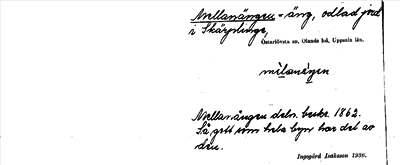 Mellanängen = äng, odlad jord
i Skärplinge,
Österlövsta sn, Olands hd, Uppsala län.
mìlanä́ŋen
Mellanängen deln. beskr. 1862.
Så gott som hela byn har del av
den.
Ingegärd Isaksson 1936.